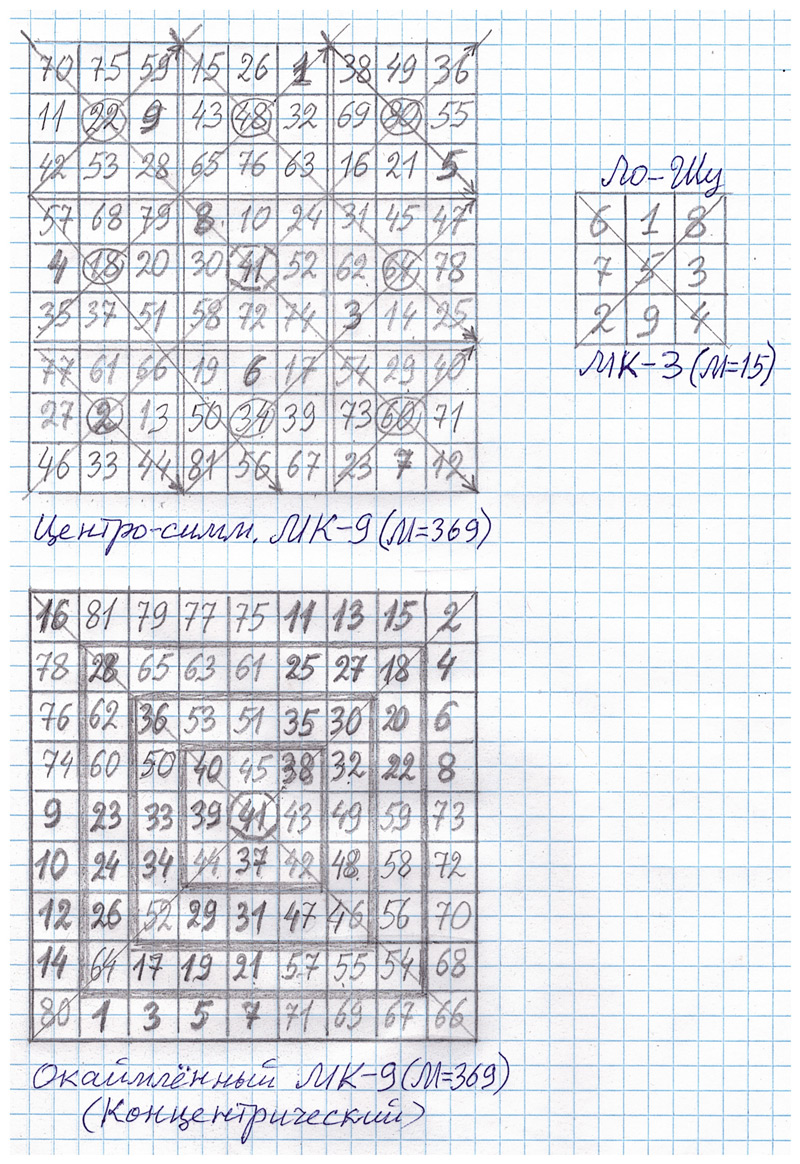 70 75 59 15 26 1 38 49 36
11 22 9 43 48 32 69 80 55
42 53 28 65 76 63 16 21 5
57 68 79 8 10 24 31 45 47
4 18 20 30 41 52 62 64 78
35 37 51 58 72 74 3 14 25
77 61 66 19 6 17 54 29 40
27 2 13 50 34 39 73 60 71
46 33 44 81 56 67 23 7 12
Центро-симм. МК-9 (М=369)
Ло-Шу
6 1 8
7 5 3
2 9 4
МК-3 (М=15)
16 81 79 77 75 11 13 15 2
78 28 65 63 61 25 27 18 4
76 62 36 53 51 35 30 20 6
74 60 50 40 45 38 32 22 8
9 23 33 39 41 43 49 59 73
10 24 34 44 37 42 48 58 72
12 26 52 29 31 47 46 56 70
14 64 17 19 21 57 55 54 68
80 1 3 5 7 71 69 67 66
Окаймлённый МК-9 (М=369)
(Концентрический)